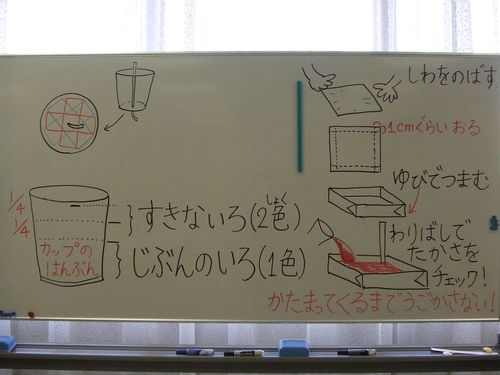 1/4
1/4
カップの
はんぶん
すきないろ(2色)
しょく
じぶんのいろ(1色)
しわをのばす
1cmぐらい おる
ゆびでつまむ
わりばしで
たかさを
チェック!
かたまってくるまでうごかさない!